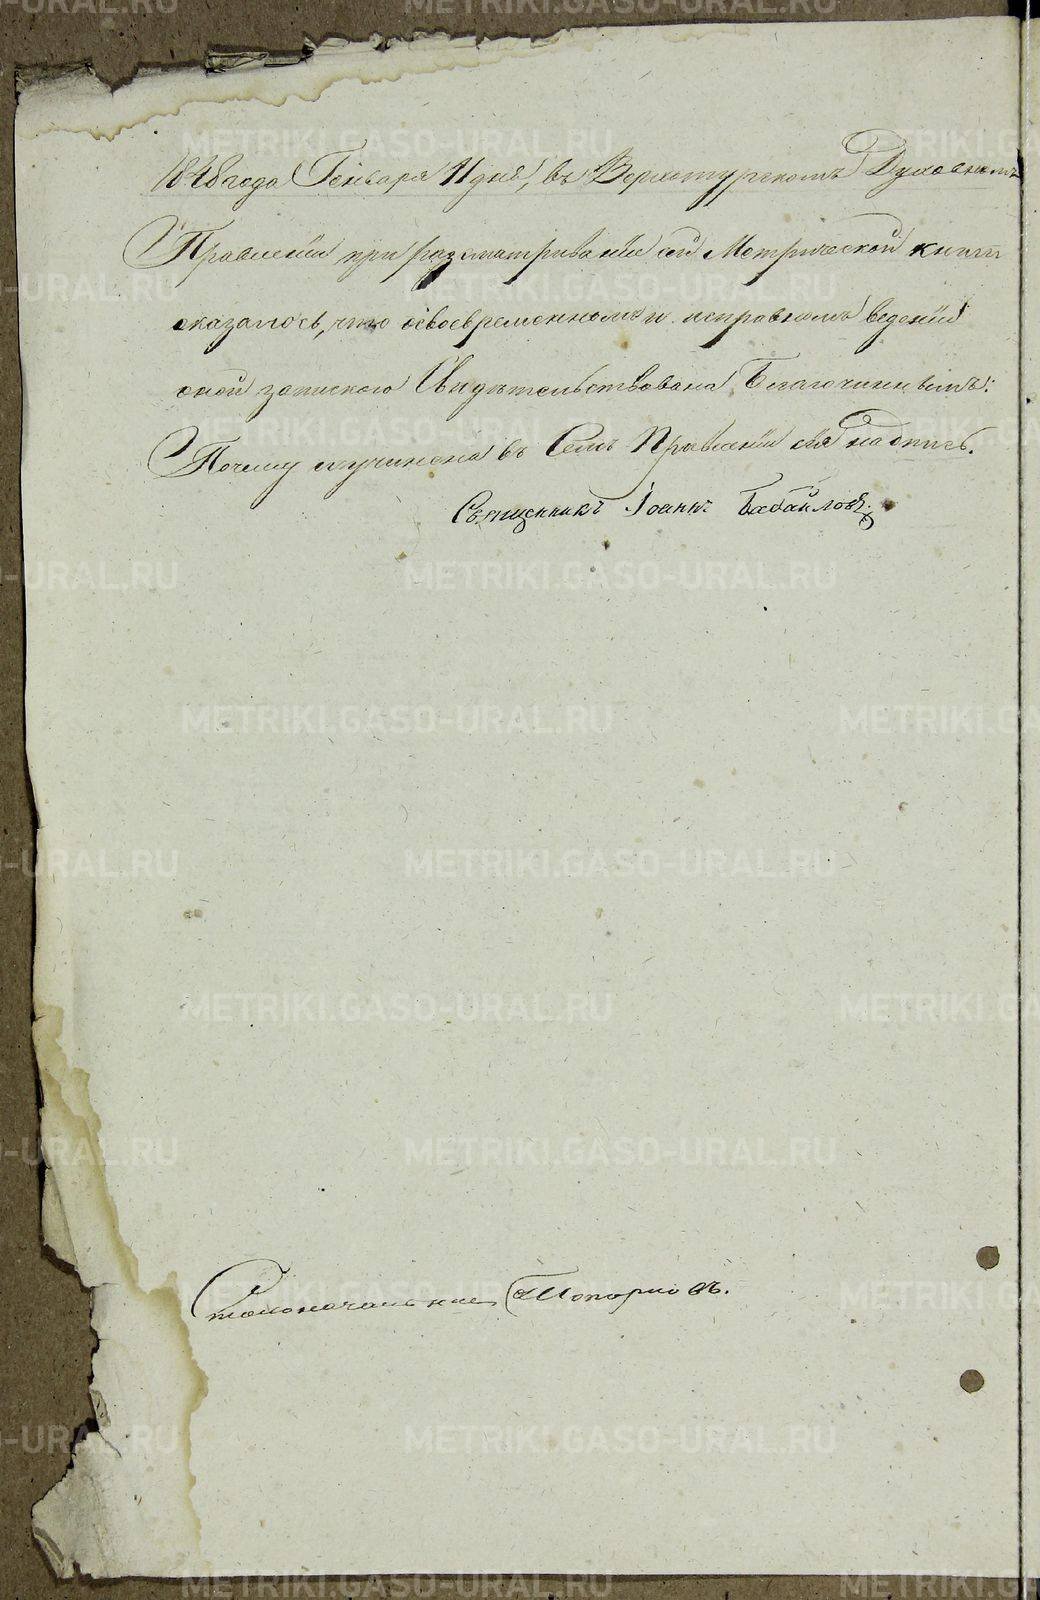 1848 года Генваря 11 дня, въ Верхотурскомъ Духовномъ
Правленіи при разсматриваніи сей Метрической книги
оказалось, что о своевременномъ и исправномъ веденіи
оной запискою Свидѣтельствована Благочиннымъ:
Почему и учинена въ Семъ Правленіи сія надпись.
Священникъ Іоаннъ
Столоначальникъ Топорковъ.
METRIKI.GASO-URAL.RU